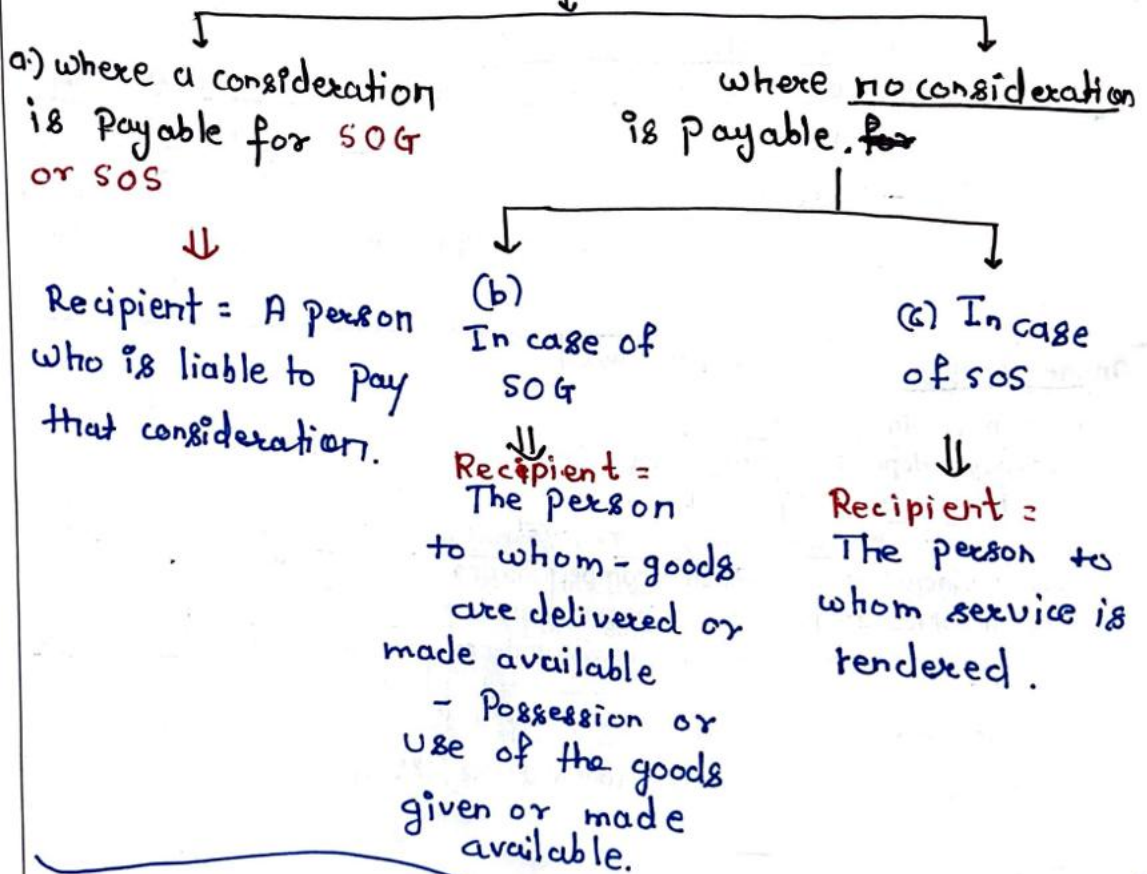 a.) where a consideration
is Payable for SOG
or SOS
Recipient = A person
who is liable to pay
that consideration.
where no consideration
is payable. for
(b)
In case of
SOG
Recipient =
The person
to whom - goods
are delivered or
made available
- Possession or
use of the goods
given or made
available.
(c) In case
of SOS
Recipient =
The person to
whom service is
rendered.